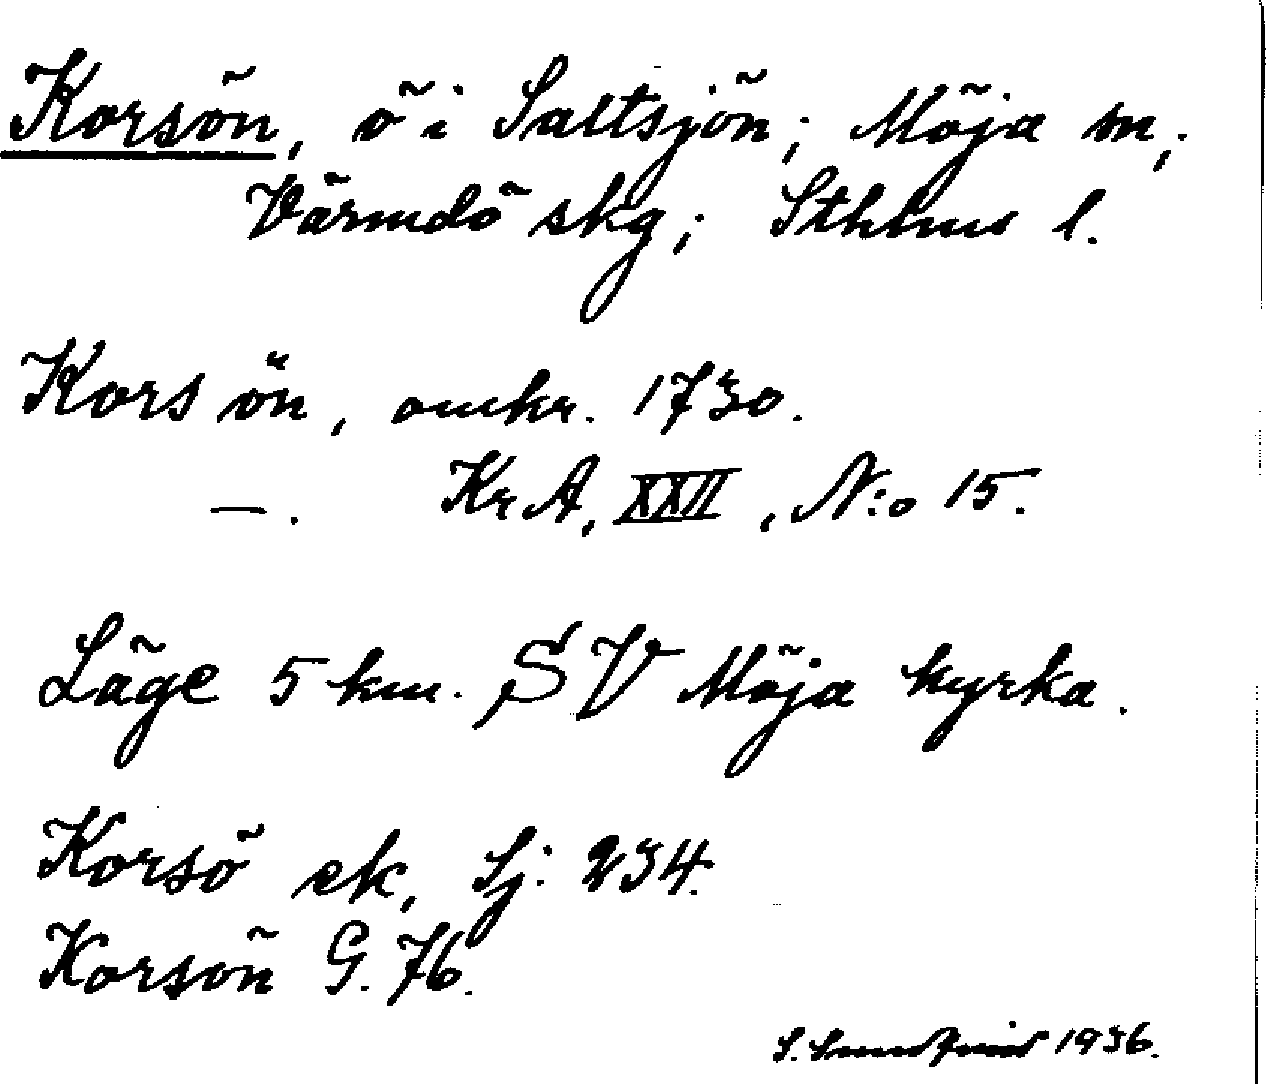 Korsön, ö i Saltsjön; Möja sn,;
Värmdö skg; Sthlms l.
Kors ön, omkr. 1730.
—. KrA, XXII, N:o 15.
Läge 5 km. SV Möja kyrka.
Korsö ek, Sj: 234.
Korsön G. 76.
S. 1936.